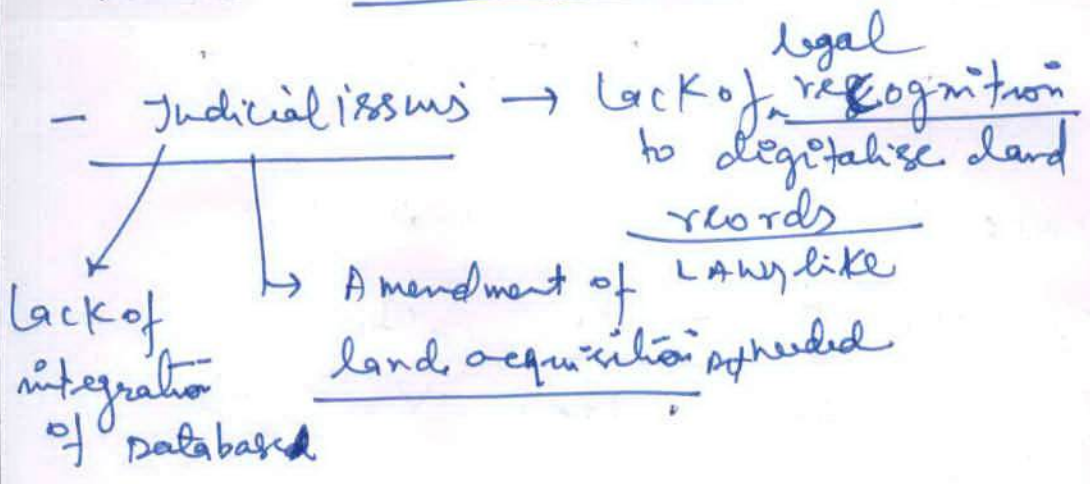 legal
- Judicial issues → Lack of ^ recognition
to digitalise land
records
Lack of
integration
of Databases
↳ Amendment of Laws like
land acquisition needed